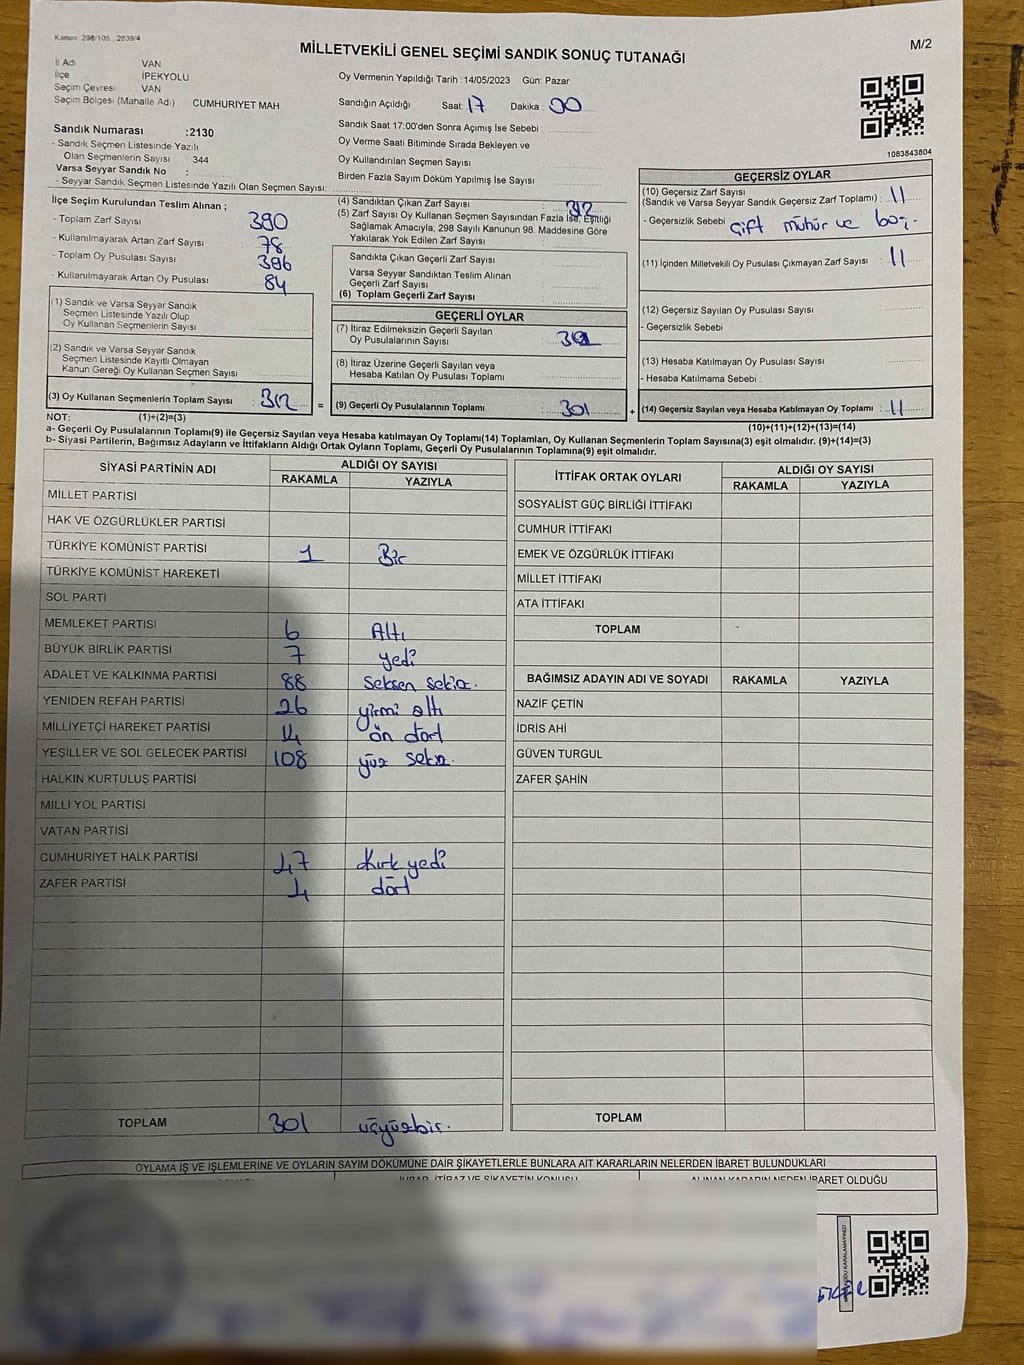 Kanun: 298/105 , 2839/4
MİLLETVEKİLİ GENEL SEÇİMİ SANDIK SONUÇ TUTANAĞI
M/2
İl Adı VAN
İlçe İPEKYOLU
Seçim Çevresi VAN
Seçim Bölgesi (Mahalle Adı) CUMHURIYET MAH
Oy Vermenin Yapıldığı Tarih :14/05/2023 Gün: Pazar
Sandığın Açıldığı Saat: 17 Dakika : 00
Sandık Saat 17:00'den Sonra Açımış İse Sebebi :
Oy Verme Saati Bitiminde Sırada Bekleyen ve
Oy Kullandırılan Seçmen Sayısı
Birden Fazla Sayım Döküm Yapılmış İse Sayısı
1083843804
Sandık Numarası :2130
- Sandık Seçmen Listesinde Yazılı
Olan Seçmenlerin Sayısı : 344
Varsa Seyyar Sandık No :
- Seyyar Sandık Seçmen Listesinde Yazılı Olan Seçmen Sayısı:
İlçe Seçim Kurulundan Teslim Alınan ;
- Toplam Zarf Sayısı 390
- Kullanılmayarak Artan Zarf Sayısı 78
- Toplam Oy Pusulası Sayısı 396
- Kullanılmayarak Artan Oy Pusulası 84
(1) Sandık ve Varsa Seyyar Sandık
Seçmen Listesinde Yazılı Olup
Oy Kullanan Seçmenlerin Sayısı
(2) Sandık ve Varsa Seyyar Sandık
Seçmen Listesinde Kayıtlı Olmayan
Kanun Gereği Oy Kullanan Seçmen Sayısı
(3) Oy Kullanan Seçmenlerin Toplam Sayısı : 312 =
(4) Sandıktan Çıkan Zarf Sayısı : 312
(5) Zarf Sayısı Oy Kullanan Seçmen Sayısından Fazla İse, Eşitliği
Sağlamak Amacıyla; 298 Sayılı Kanunun 98. Maddesine Göre
Yakılarak Yok Edilen Zarf Sayısı :
Sandıkta Çıkan Geçerli Zarf Sayısı
Varsa Seyyar Sandıktan Teslim Alınan
Geçerli Zarf Sayısı
(6) Toplam Geçerli Zarf Sayısı
GEÇERLİ OYLAR
(7) İtiraz Edilmeksizin Geçerli Sayılan
Oy Pusulalarının Sayısı
(8) İtiraz Üzerine Geçerli Sayılan veya
Hesaba Katılan Oy Pusulası Toplamı
(9) Geçerli Oy Pusulalarının Toplamı : 301 +
GEÇERSİZ OYLAR
(10) Geçersiz Zarf Sayısı
(Sandık ve Varsa Seyyar Sandık Geçersiz Zarf Toplamı) : 11
- Geçersizlik Sebebi : çift mühür ve boş.
(11) İçinden Milletvekili Oy Pusulası Çıkmayan Zarf Sayısı : 11
(12) Geçersiz Sayılan Oy Pusulası Sayısı
- Geçersizlik Sebebi :
(13) Hesaba Katılmayan Oy Pusulası Sayısı
- Hesaba Katılmama Sebebi :
(14) Geçersiz Sayılan veya Hesaba Katılmayan Oy Toplamı : 11
NOT: (1)+(2)=(3)
(10)+(11)+(12)+(13)=(14)
a- Geçerli Oy Pusulalarının Toplamı(9) ile Geçersiz Sayılan veya Hesaba katılmayan Oy Toplamı(14) Toplamları, Oy Kullanan Seçmenlerin Toplam Sayısına(3) eşit olmalıdır. (9)+(14)=(3)
b- Siyasi Partilerin, Bağımsız Adayların ve İttifakların Aldığı Ortak Oyların Toplamı, Geçerli Oy Pusulalarının Toplamına(9) eşit olmalıdır.
SİYASİ PARTİNİN ADI ALDIĞI OY SAYISI
RAKAMLA YAZIYLA
MİLLET PARTİSİ
HAK VE ÖZGÜRLÜKLER PARTİSİ
TÜRKİYE KOMÜNİST PARTİSİ 1 Bir
TÜRKİYE KOMÜNİST HAREKETİ
SOL PARTİ
MEMLEKET PARTİSİ 6 Altı
BÜYÜK BİRLİK PARTİSİ 7 yedi
ADALET VE KALKINMA PARTİSİ 88 seksen sekiz.
YENİDEN REFAH PARTİSİ 26 yirmi altı
MİLLİYETÇİ HAREKET PARTİSİ 14 ön dört
YEŞİLLER VE SOL GELECEK PARTİSİ 108 yüz sekiz.
HALKIN KURTULUŞ PARTİSİ
MİLLİ YOL PARTİSİ
VATAN PARTİSİ
CUMHURİYET HALK PARTİSİ 47 Kırk yedi
ZAFER PARTİSİ 4 dört
TOPLAM 301 üçyüzbir.
İTTİFAK ORTAK OYLARI ALDIĞI OY SAYISI
RAKAMLA YAZIYLA
SOSYALİST GÜÇ BİRLİĞİ İTTİFAKI
CUMHUR İTTİFAKI
EMEK VE ÖZGÜRLÜK İTTİFAKI
MİLLET İTTİFAKI
ATA İTTİFAKI
TOPLAM
BAĞIMSIZ ADAYIN ADI VE SOYADI RAKAMLA YAZIYLA
NAZİF ÇETİN
İDRİS AHİ
GÜVEN TURGUL
ZAFER ŞAHİN
TOPLAM
OYLAMA İŞ VE İŞLEMLERİNE VE OYLARIN SAYIM DÖKÜMÜNE DAİR ŞİKAYETLERLE BUNLARA AİT KARARLARIN NELERDEN İBARET BULUNDUKLARI
İTİRAZ VE ŞİKAYETİN KONUSU
ALINAN KARARIN NEDEN İBARET OLDUĞU